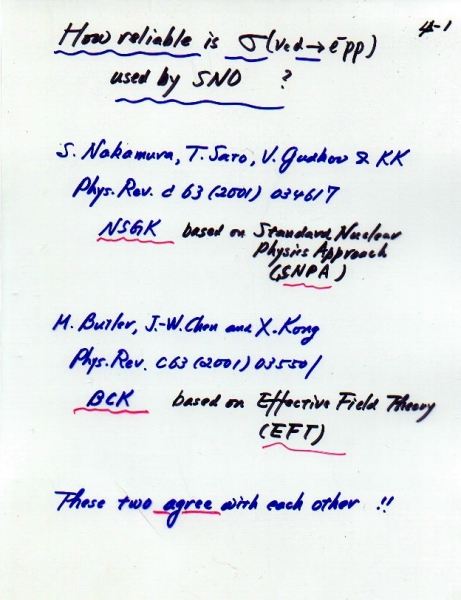 4-1
How reliable is σ(νed→e⁻pp)
used by SNO ?
S. Nakamura, T. Sato, V. Gudkov & KK
Phys. Rev. C 63 (2001) 034617
NSGK based on Standard Nuclear
Physics Approach
(SNPA)
M. Butler, J.-W. Chen and X. Kong
Phys. Rev. C63 (2001) 035501
BCK based on Effective Field Theory
(EFT)
These two agree with each other !!